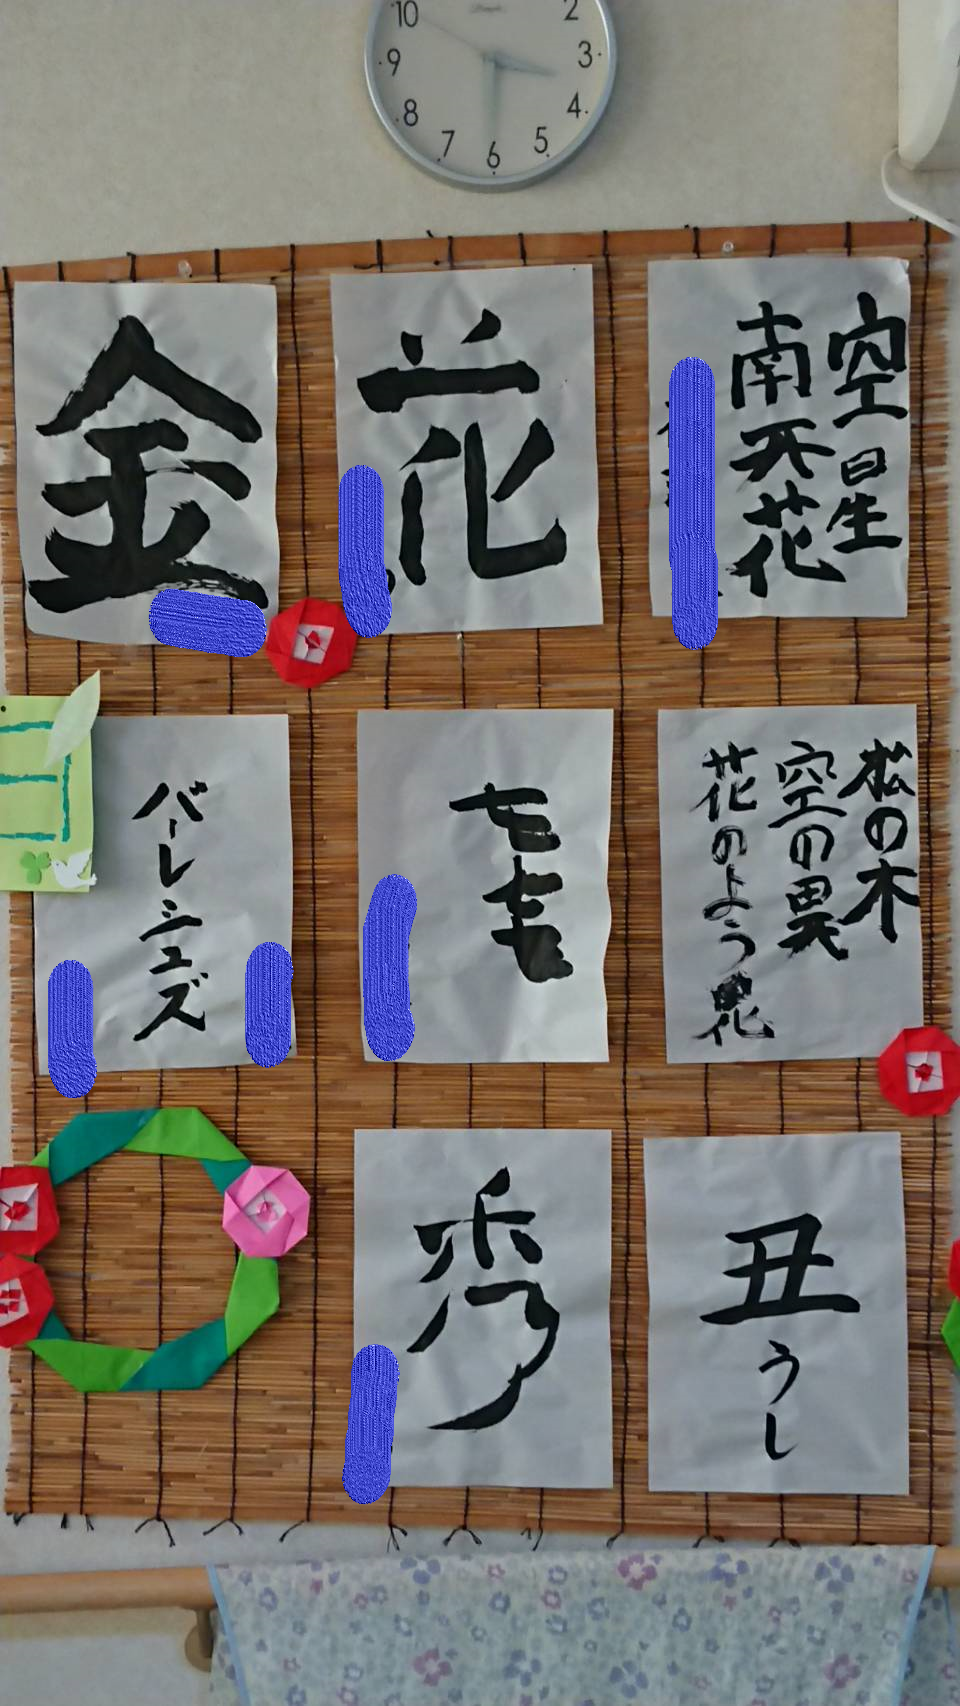 10
2
9
3
8
4
7
6
5
金
花
空日生
南天花
バーレシュズ
モモ
松の木
空の異
花のよう
秀
丑
うし